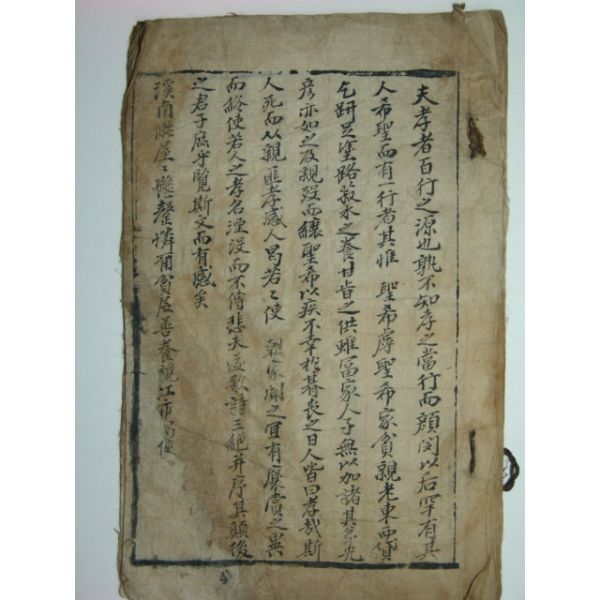 夫孝者百行之源也孰不知孝之當行而顔閔以后罕有其
人希聖而有一行者其惟 聖希虖聖希家貧親老東西貸
乞趼足塗路菽水之養甘旨之供雖富家人子無以加諸其
彦亦如之及親沒而纕聖希以疾不幸於朞喪之日人皆曰孝哉斯
人死而從親匪孝感人曷若之使 朝家聞之宜有褒賞之典
而終使若人之孝名湮沒而不傳悲夫遂歌詩三絶幷序其顚後
之君子庶乎覽斯文而有感矣
溪南 屋 罄憐甭貧居善養親江市